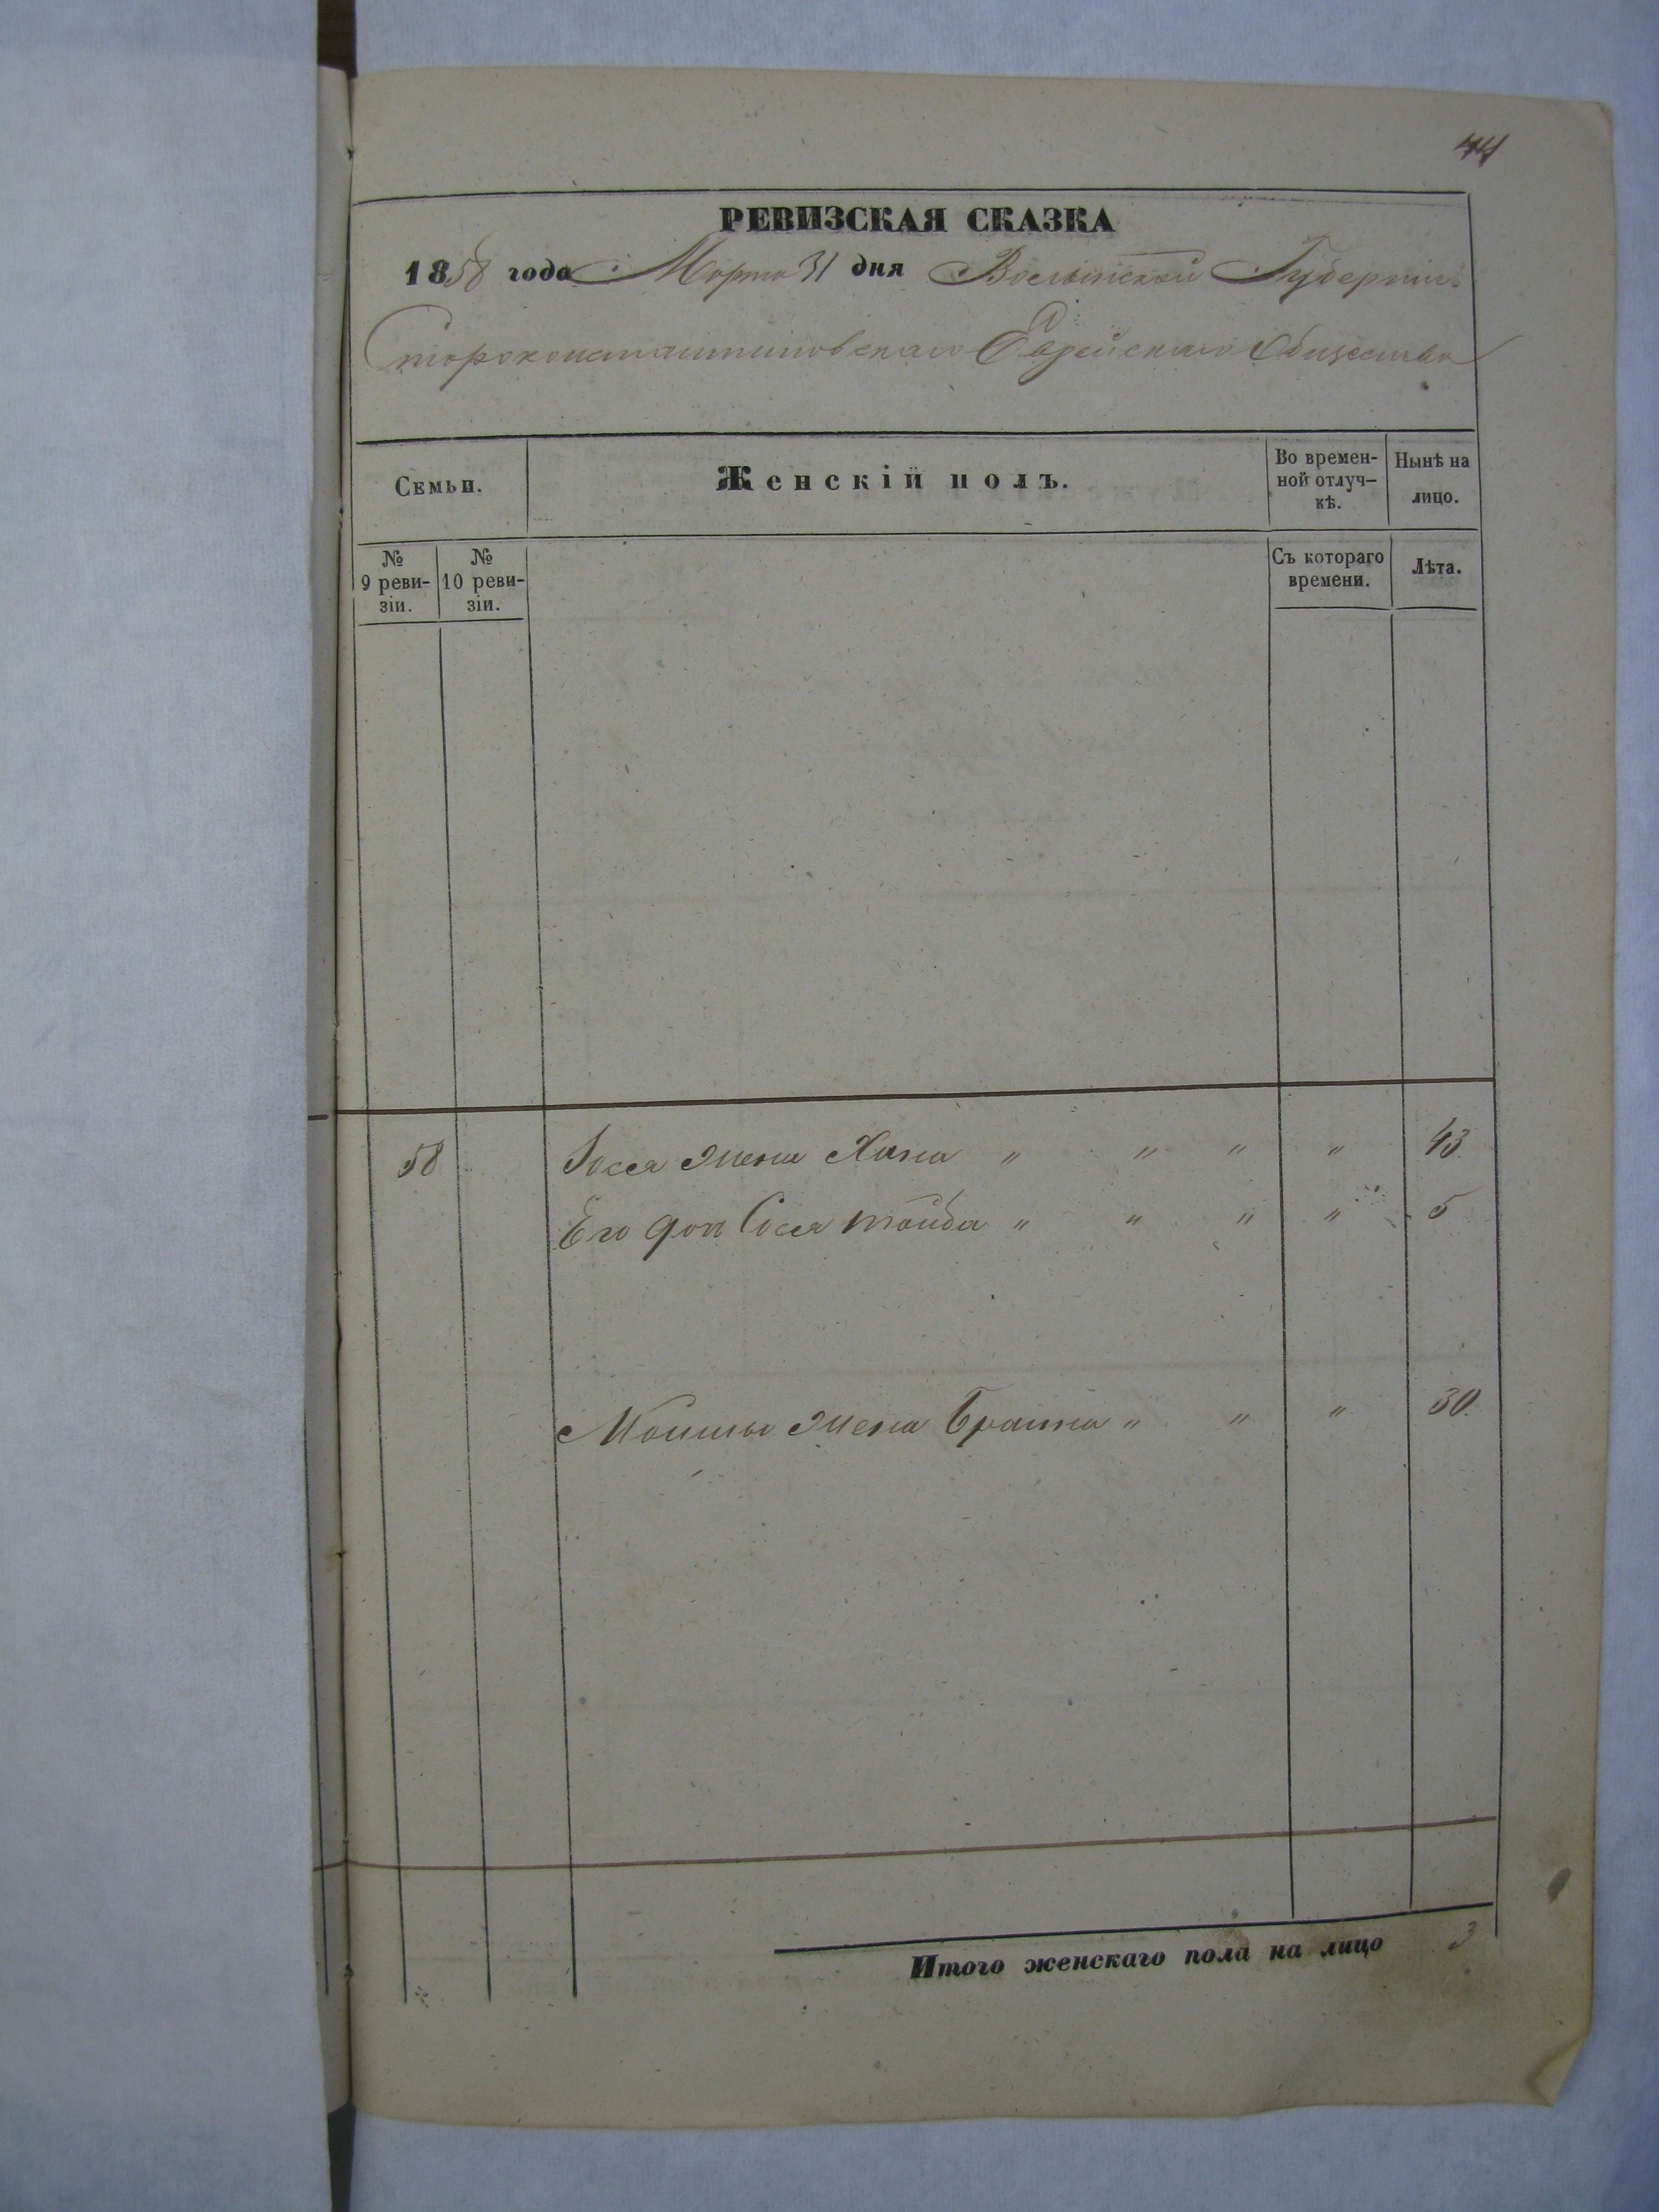 44
РЕВИЗСКАЯ СКАЗКА
1858 года Марта 31 дня Волынской Губерніи
Староконстантиновскаго Еврейскаго Общества
Семьи.
Женскій полъ.
Во времен-
ной отлуч-
кѣ.
Нынѣ на
лицо.
№
9 реви-
зіи.
№
10 реви-
зіи.
Съ котораго
времени.
Лѣта.
58 жена Хана " " " " 43
Его доч Сося тойба " " " " 5
Мошка жена Брайна " " " 30.
Итого женскаго пола на лицо 3